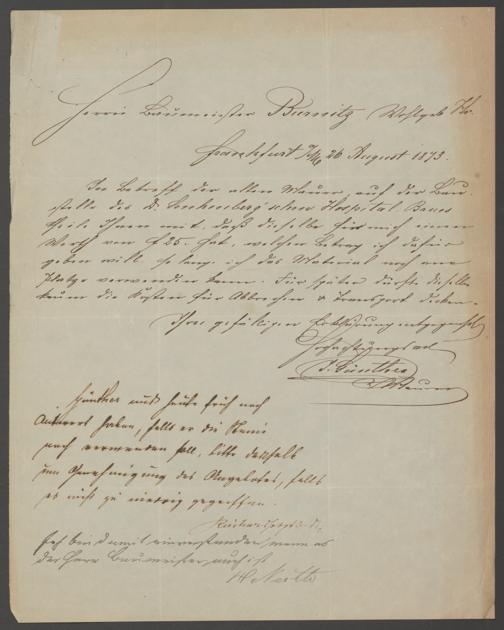 Herrn Baumeister Burnitz Wohlgeb. Hr.
Frankfurt a/M 26 August 1873.
In Betreff der alten Mauer, auf der Bau-
stelle des Dr. Senckenberg'schen Hospital Baues
theile Ihnen mit, daß dieselbe für mich einen
Werth von f 25. hat, welchen Betrag ich dafür
geben will, so lang ich das Material noch am
Platze verwenden kann. Für später dürfte dieselbe
kaum die Kosten für Abbrechen & Transport decken.
Ihrer gefälligen Erklärung entgegensehend
Hochachtungsvoll
J. Günther
Maurer
Günther muß heute früh noch
Antwort haben, falls er die Steine
noch verwenden soll, bitte deshalb
um Genehmigung des Angebotes, falls
es nicht zu niedrig gegriffen.
Ich bin damit einverstanden, wenn es
der Herr Baumeister auch ist